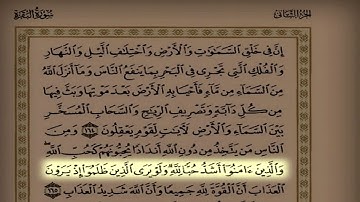 سُورَةُ البَقَرَةِ الجُزءُ الثَّانِي
إِنَّ فِى خَلْقِ ٱلسَّمَـٰوَٰتِ وَٱلْأَرْضِ وَٱخْتِلَـٰفِ ٱلَّيْلِ وَٱلنَّهَارِ
وَٱلْفُلْكِ ٱلَّتِى تَجْرِى فِى ٱلْبَحْرِ بِمَا يَنفَعُ ٱلنَّاسَ وَمَآ أَنزَلَ ٱللَّهُ
مِنَ ٱلسَّمَآءِ مِن مَّآءٍ فَأَحْيَا بِهِ ٱلْأَرْضَ بَعْدَ مَوْتِهَا وَبَثَّ فِيهَا
مِن كُلِّ دَآبَّةٍ وَتَصْرِيفِ ٱلرِّيَـٰحِ وَٱلسَّحَابِ ٱلْمُسَخَّرِ
بَيْنَ ٱلسَّمَآءِ وَٱلْأَرْضِ لَـَٔايَـٰتٍ لِّقَوْمٍ يَعْقِلُونَ ١٦٤ وَمِنَ
ٱلنَّاسِ مَن يَتَّخِذُ مِن دُونِ ٱللَّهِ أَندَادًا يُحِبُّونَهُمْ كَحُبِّ ٱللَّهِ ۖ
وَٱلَّذِينَ ءَامَنُوٓا۟ أَشَدُّ حُبًّا لِّلَّهِ ۗ وَلَوْ يَرَى ٱلَّذِينَ ظَلَمُوٓا۟ إِذْ يَرَوْنَ
ٱلْعَذَابَ أَنَّ ٱلْقُوَّةَ لِلَّهِ جَمِيعًا وَأَنَّ ٱللَّهَ شَدِيدُ ٱلْعَذَابِ ١٦٥